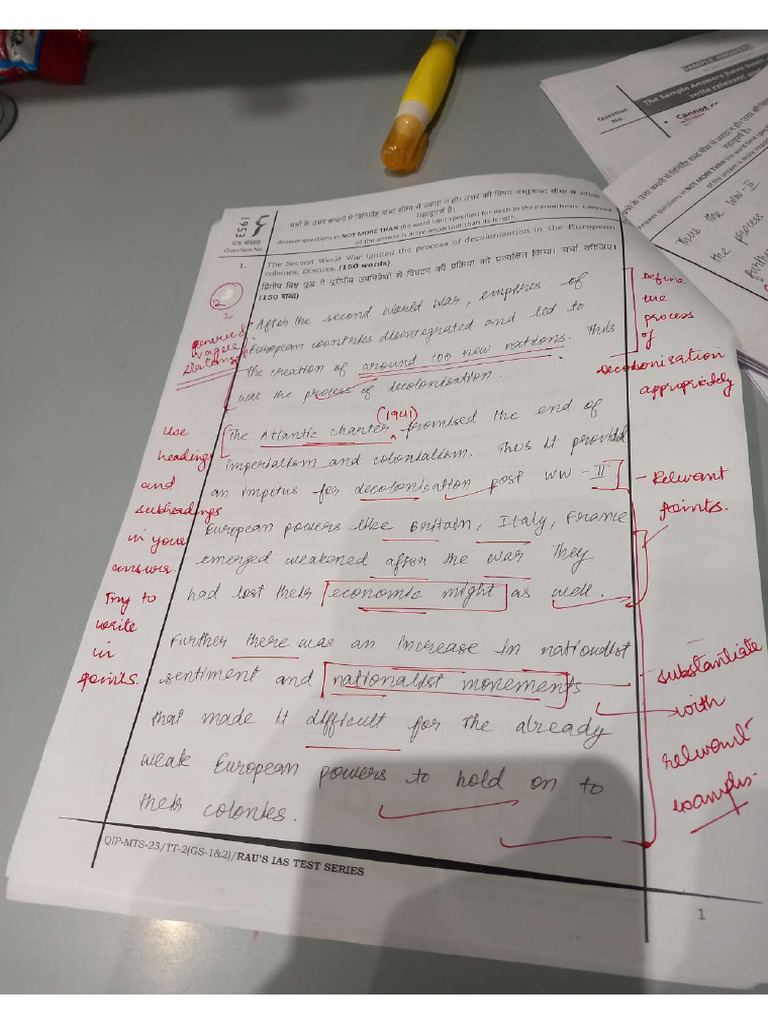 SAMPLE ANSWER
The Sample Answers have been
write relevant
Question No.
• Cannot
Answer questions in NOT MORE THAN the word limit
Thus the WW-II
the process
1953
प्रश्न संख्या
Question No.
प्रश्नों के उत्तर कोष्ठकों में विनिर्दिष्ट शब्द सीमा से ज़्यादा न हों। उत्तर की विषय-वस्तु शब्द सीमा से अधिक
महत्वपूर्ण है।
Answer questions in NOT MORE THAN the word limit specified for each in the parenthesis. Content
of the answer is more important than its length.
1. The Second World War ignited the process of decolonization in the European
colonies. Discuss. (150 words)
द्वितीय विश्व युद्ध ने यूरोपीय उपनिवेशों में विघटन की प्रक्रिया को प्रज्वलित किया। चर्चा कीजिए।
(150 शब्द)
2
After the second World War, empires of
European countries disintegrated and led to
the creation of around 100 new nations. Thus
was the process of decolonisation.
Generic & vague statements
Define the process of decolonization appropriately
(1941)
The Atlantic charter promised the end of
imperialism and colonialism. Thus it provided
an impetus for decolonisation post WW-II
European powers like Britain, Italy, France
emerged weakened after the war They
had lost their economic might as well.
Further there was an increase in nationalist
sentiment and nationalist movements
that made it difficult for the already
weak European powers to hold on to
their colonies.
Use
headings
and
subheadings
in your
answer.
Try to
write
in
points.
Relevant
points.
substantiate
with
relevant
examples.
QIP-MTS-23/TT-2(GS-1&2)/RAU'S IAS TEST SERIES
1